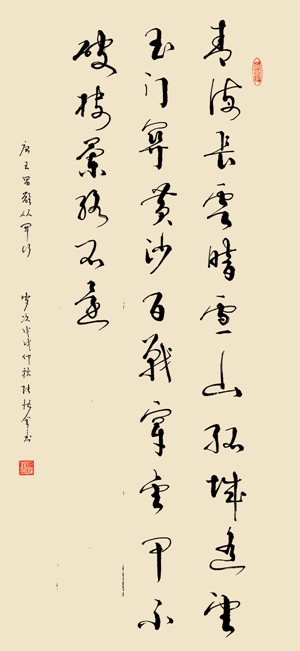 青海長雲暗雪山孤城遥望
玉门关黄沙百戰穿金甲不
破楼蘭终不还
唐王昌龄从军行
岁次戊戌仲秋书